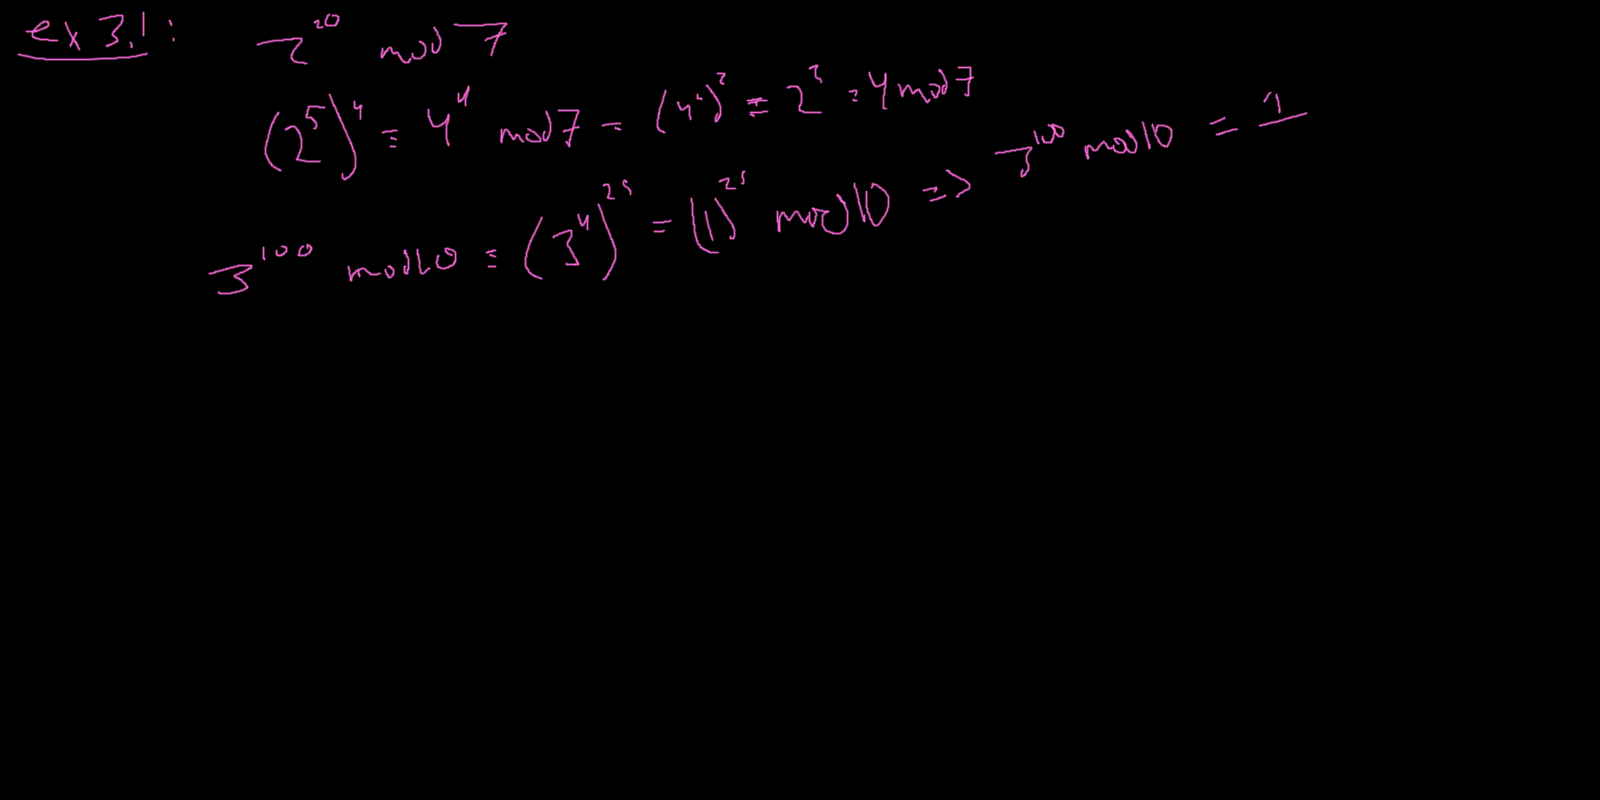 ex 3.1: 2^20 mod 7
(2^5)^4 ≡ 4^4 mod 7 = (4^2)^2 ≡ 2^2 = 4 mod 7
3^100 mod 10 ≡ (3^4)^25 = (1)^25 mod 10 => 3^100 mod 10 = 1